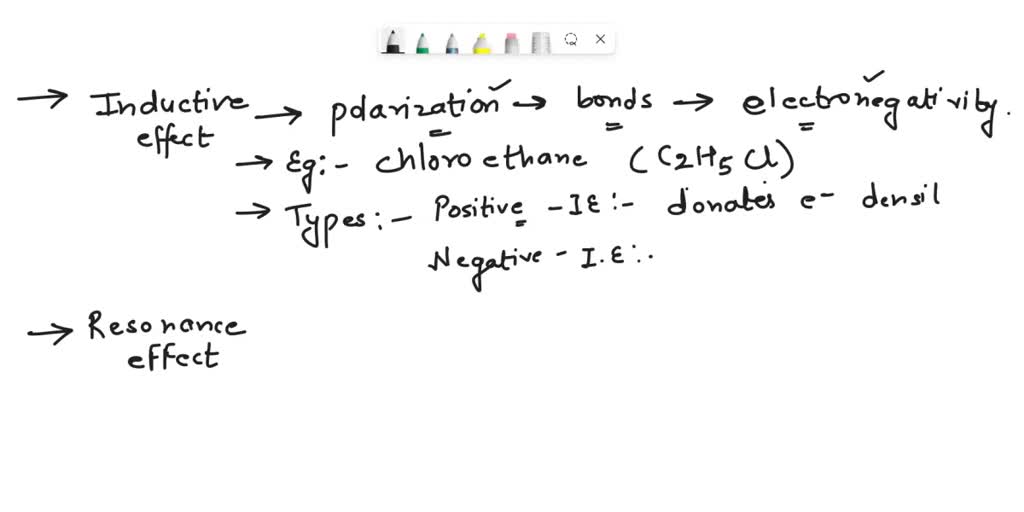 → Inductive effect → polarization → bonds → electronegativity.
→ Eg:- chloro ethane (C2H5Cl)
→ Types:- Positive - IE :- donates e- densit
Negative - I.E :-
→ Resonance
effect